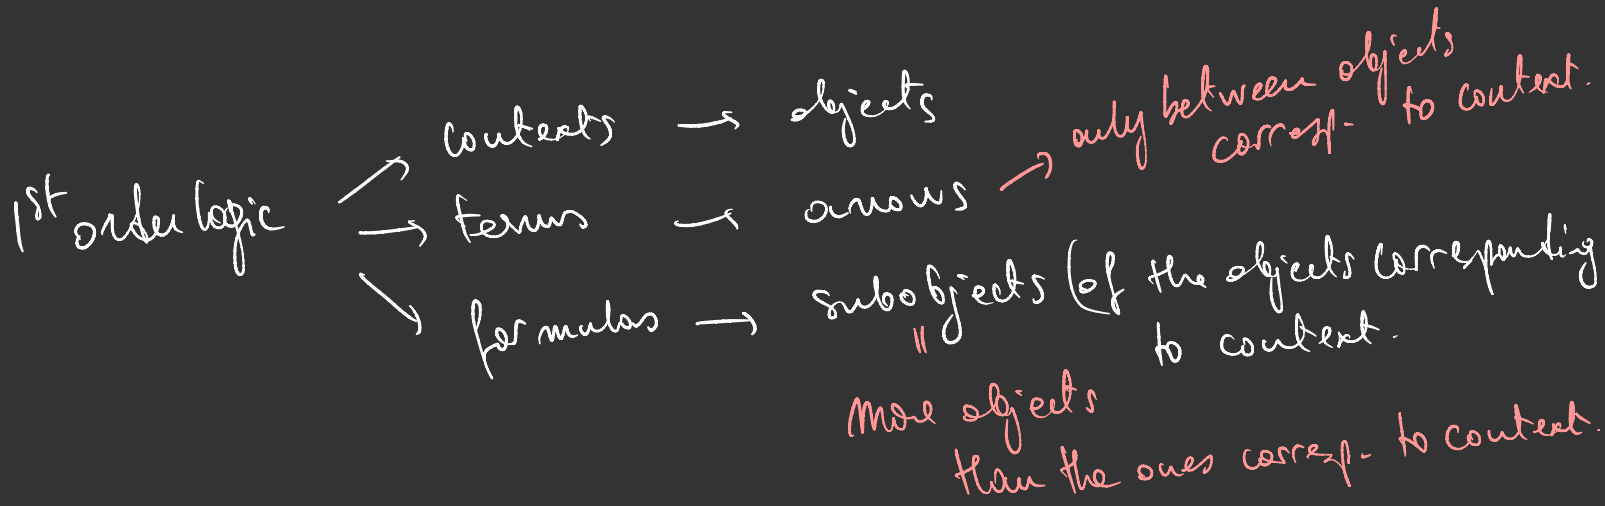 contexts → objects
1st order logic → terms → arrows → only between objects
corresp. to context.
formulas → subobjects (of the objects corresponding
to context.
||
more objects
than the ones corresp. to context.